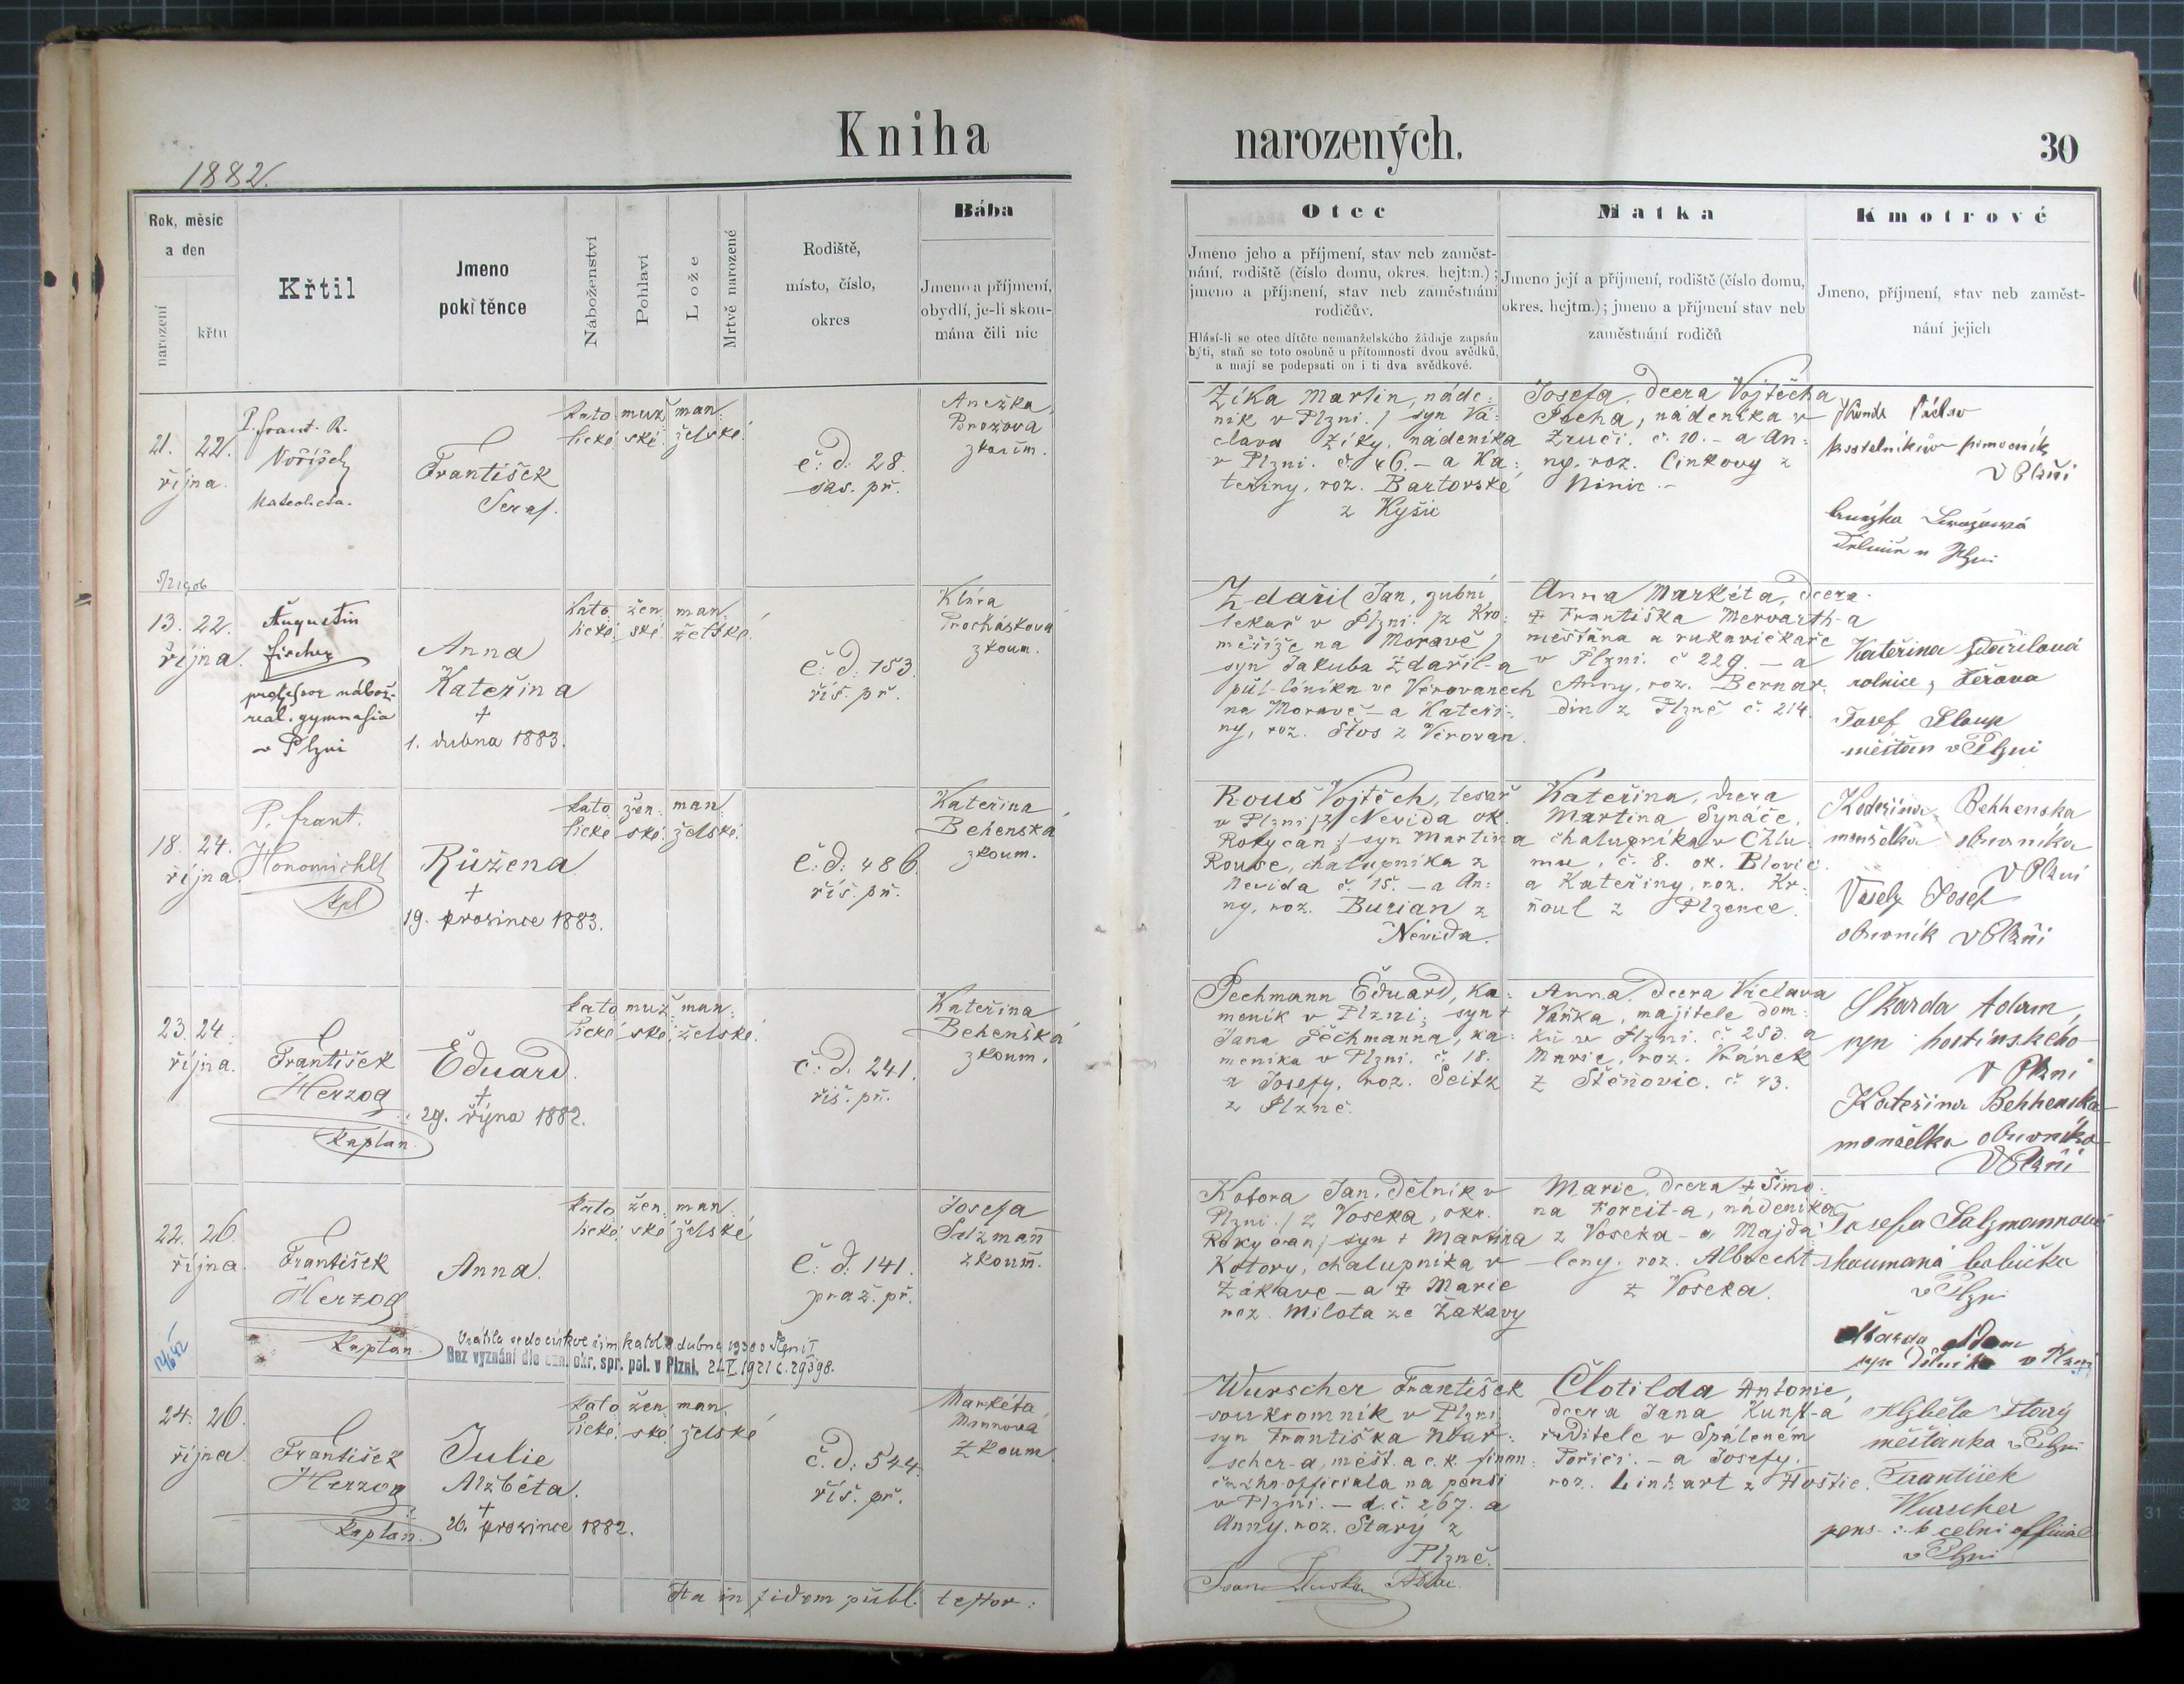 Kniha
narozených.
30
1882.
Rok, měsíc
a den
narození
křtu
Křtil
Jmeno
pokřtěnce
Náboženství
Pohlaví
Lože
Mrtvě narozené
Rodiště,
místo, číslo,
okres
Bába
Jmeno a příjmení,
obydlí, je-li skou-
mána čili nic
Otec
Jmeno jeho a příjmení, stav neb zaměst-
nání, rodiště (číslo domu, okres. hejtm.);
jmeno a příjmení, stav neb zaměstnání
rodičův.
Hlásí-li se otec dítěte nemanželského žádaje zapsán
býti, staň se toto osobně u přítomnosti dvou svědků,
a mají se podepsati on i ti dva svědkové.
Matka
Jmeno její a příjmení, rodiště (číslo domu,
okres. hejtm.); jmeno a příjmení stav neb
zaměstnání rodičů
Kmotrové
Jmeno, příjmení, stav neb zaměst-
nání jejich
21. 22.
října.
P. Frant. R.
Voříšek
katecheta.
František
Seraf.
kato muž man:
lické ské. želské.
č: d: 28.
sas. př.
Anežka
Brožova
zkoum.
Zíka Martin, náde:
ník v Plzni. / syn Vá:
clava Zíky, nádeníka
v Plzni. č. 46. — a Ka:
teřiny, roz. Bartovské
z Kyšic
Josefa, dcera Vojtěcha
Pecha, nádeníka v
Zruči. č. 10. - a An:
ny, roz. Cinkovy z
Ninic. -
Václav
kostelníkův pomocník
v Plzni
v Plzni
5/2 1906
13. 22.
října.
Augustin
Fischer
professor nábož.
real. gymnasia
v Plzni
Anna
Kateřina
+
1. dubna 1883.
kato žen man
lické. ské želské.
č: d: 153.
říš. př.
Klára
Procházková
zkoum.
Zdařil Jan, zubní
lekař v Plzni. /z Kro:
měříže na Moravě /
syn Jakuba Zdařil-a
půl-láníka ve Věrovanech
na Moravě — a Kateři:
ny, roz. Štos z Věrovan.
Anna Markéta, dcera
+ Františka Mervarth-a
měšťana a rukavičkáře
v Plzni. č 229. — a
Anny, roz. Bernar:
din z Plzně č. 214.
Kateřina Zdařilová
rolnice z
Josef Sloup
měšťan v Plzni
18. 24.
října.
P. Frant.
Honomichl
kpl
Růžena
+
19. prosince 1883.
kato žen: man
lické ské. želské.
č: d: 486.
říš. př.
Kateřina
Behenská
zkoum.
Rouš Vojtěch, tesař
v Plzni /z Nevida ok.
Rokycan / syn Martina
Rouše, chalupníka z
Nevida č. 15. — a An:
ny, roz. Burian z
Nevida.
Kateřina, dcera
Martina Synáče,
chalupníka v Chlu:
mu, č. 8. ok. Blovic
a Kateřiny, roz. Kr:
ňoul z Plzence.
Kateřina Behhenska
manželka obuvníka
v Plzni
Veselý Josef
obuvník v Plzni
23. 24.
října.
František
Herzog
kaplan.
Eduard.
+
29. října 1882.
kato muž man:
lické ské. želské.
č: d: 241.
říš. př.
Kateřina
Behenská
zkoum.
Pechmann Eduard, ka:
meník v Plzni; syn +
Jana Pechmanna, ka:
meníka v Plzni. č. 18.
a Josefy, roz. Seitz
z Plzně.
Anna, dcera Václava
Vaňka, majitele dom:
ku v Plzni. č 253. a
Marie, roz. Vránek
z Štěnovic. č 43.
Skarda Adam,
syn hostinskeho
v Plzni
Kateřina Behhenska
manželka obuvníka
v Plzni
22. 26.
října.
František
Herzog
kaplan.
Anna.
kato žen: man:
lické ské želské
č: d: 141.
praž. př.
Josefa
Salzmann
zkoum.
Vrátila se do církve řím. katol. dubna 1930 v Plzni II
Bez vyznání dle ozn. okr. spr. pol. v Plzni. 21.V.1921 č. 29398.
Kotora Jan, dělník v
Plzni. / z Voseka, okr.
Rokycan; syn + Martina
Kotory, chalupníka v
Žákave — a + Marie
roz. Milota ze Žákavy
Marie, dcera + Šimo:
na Foreit-a, nádeníka
z Voseka - a Majda:
leny, roz. Albrecht
z Voseka.
Josefa Salzmannová
skoumaná babička
v Plzni
Skarda Adam
syn v Plzni
24. 26.
října
František
Herzog
kaplan.
Julie
Alžběta.
+
26. prosince 1882.
kato žen man,
lické. ské želské
č. d: 544.
říš. př.
Markéta
Mannova
zkoum.
Wurscher František
soukromník v Plzni
syn Františka Wur:
scher-a, měšť. a c. k. finan:
čního officiala na pensi
v Plzni. — d. č. 267. a
Anny, roz. Starý z
Plzně.
Clotilda Antonie,
dcera Jana Kunst-a
ředitele v Spáleném
Poříčí. - a Josefy,
roz. Linhart z Hoštic.
Alžběta Starý
měšťanka v Plzni
František
Wurscher
pens. celní official
v Plzni
Ita in fidem publ. testor: